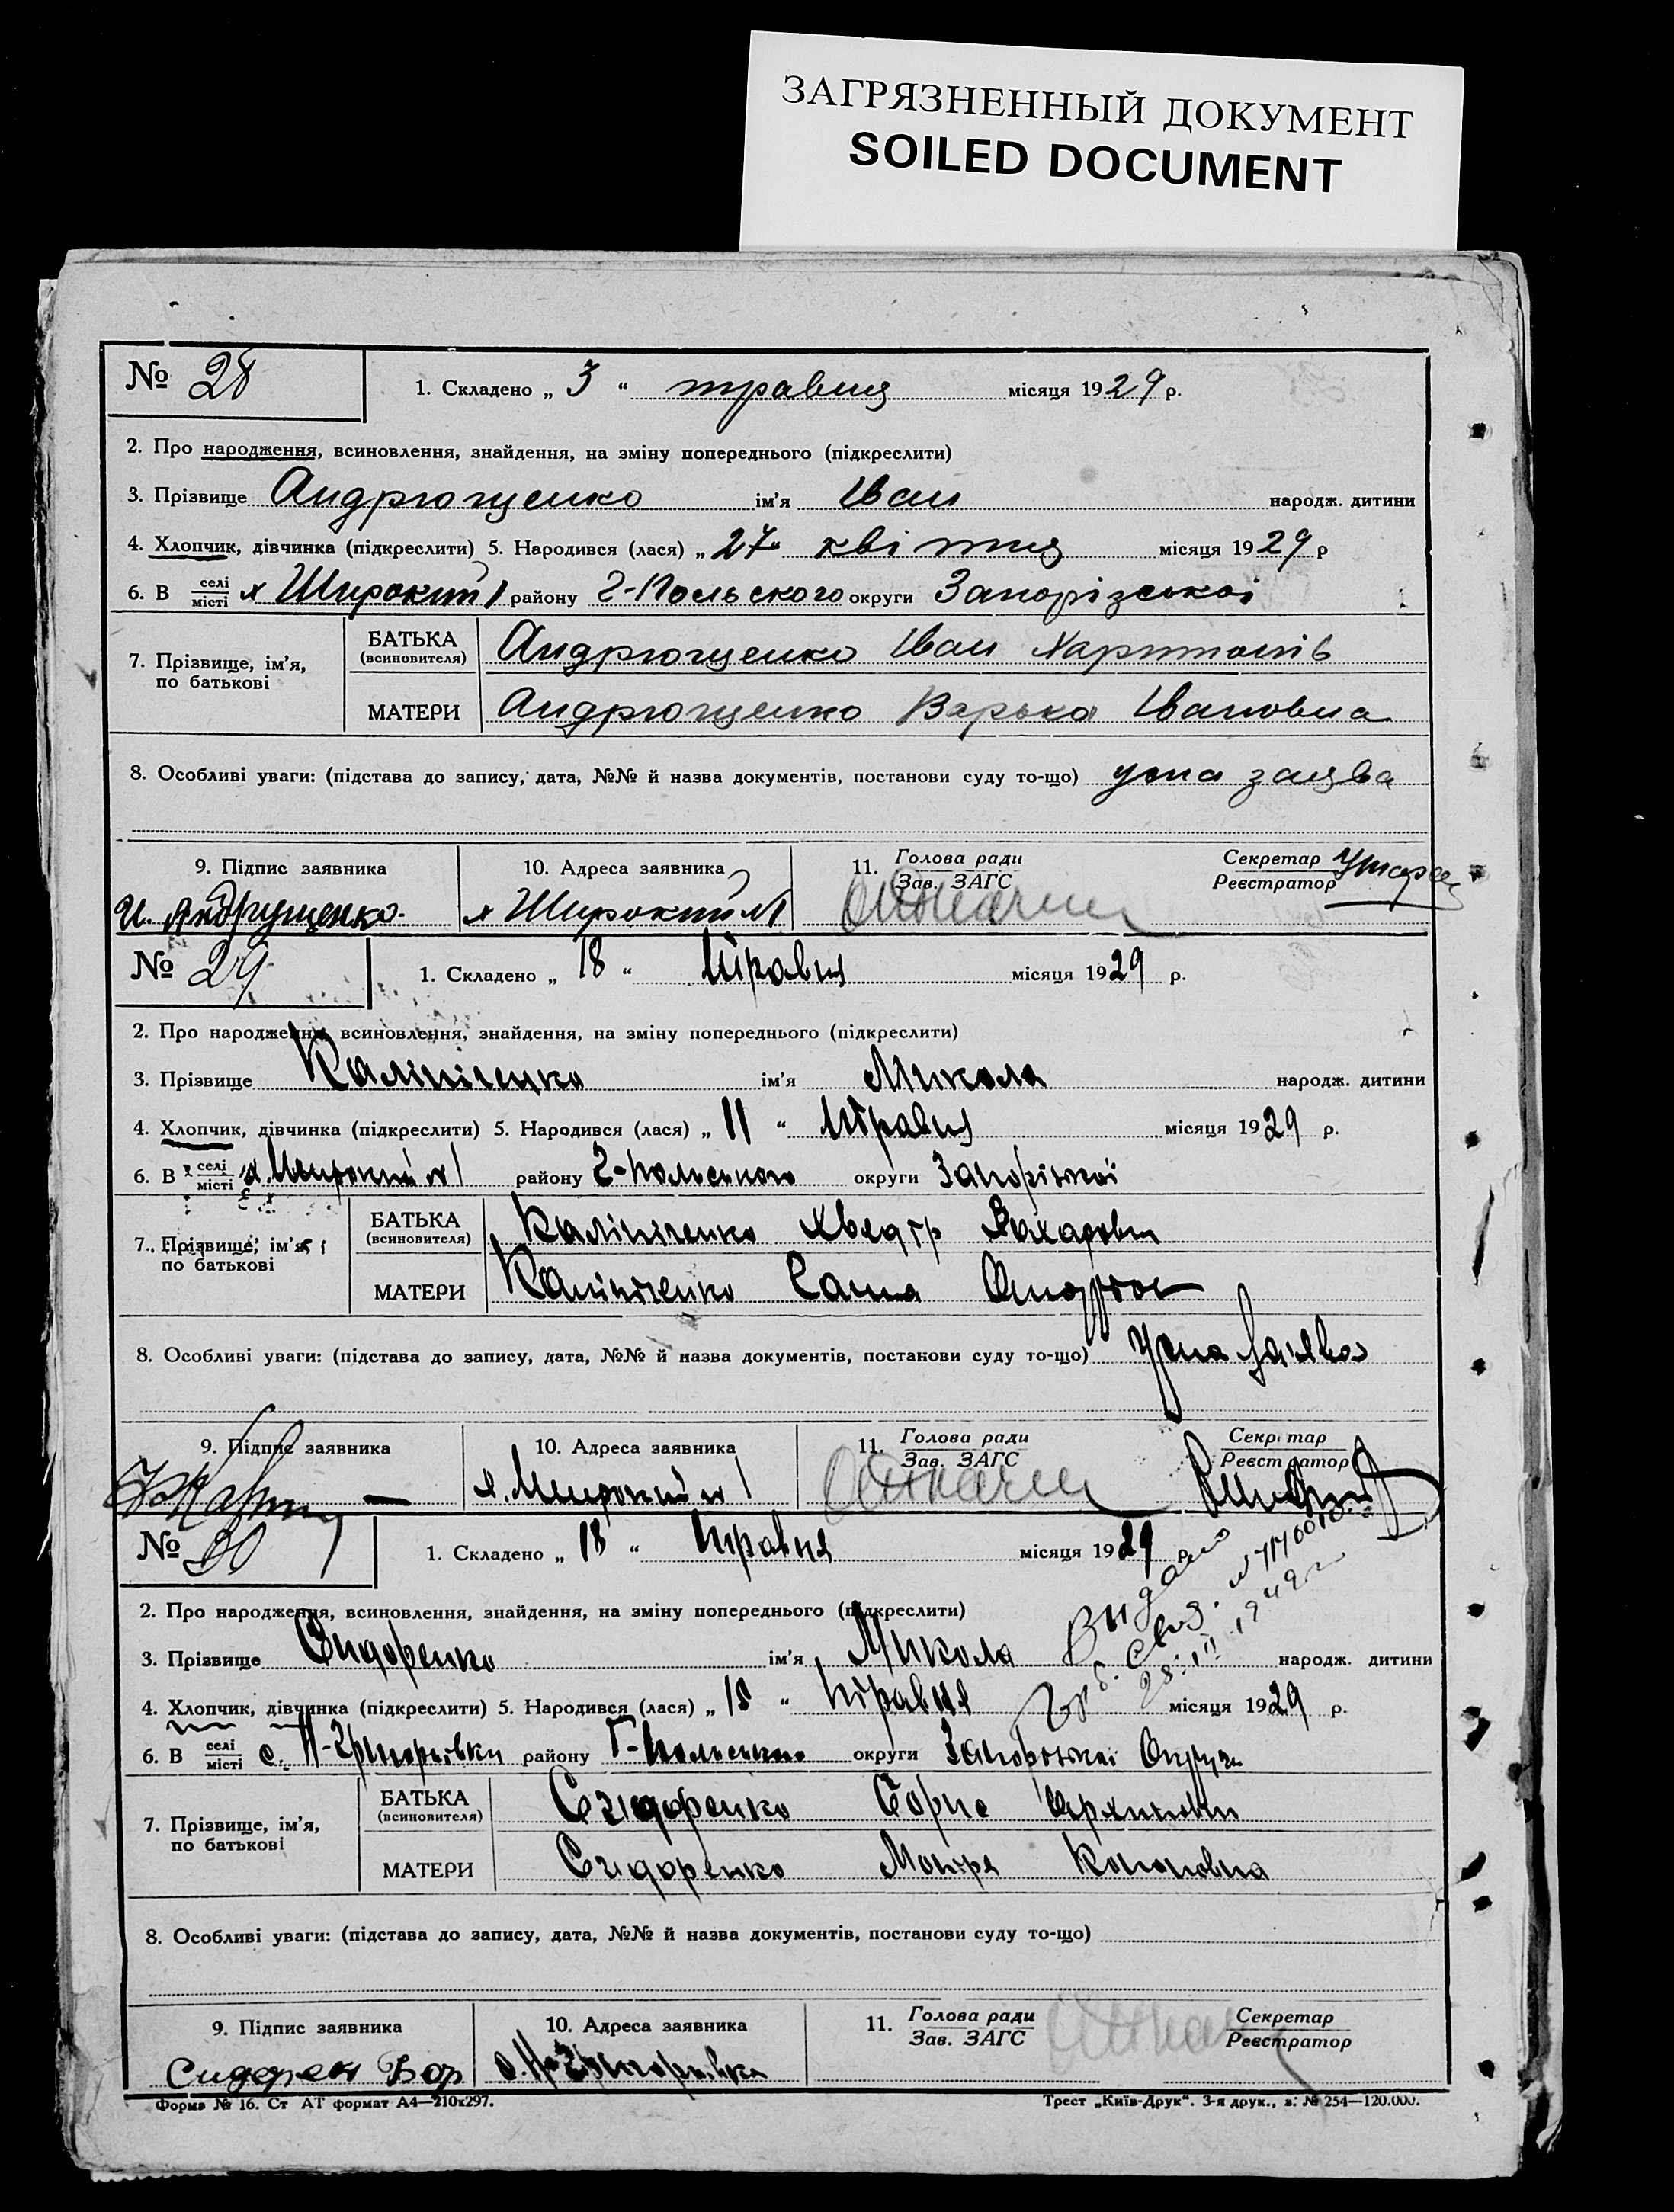 ЗАГРЯЗНЕННЫЙ ДОКУМЕНТ
SOILED DOCUMENT
№ 28
1. Складено „ 3 “ травня місяця 1929 р.
2. Про народження, всиновлення, знайдення, на зміну попереднього (підкреслити)
3. Прізвище Андрющенко ім'я Іван народж. дитини
4. Хлопчик, дівчинка (підкреслити) 5. Народився (лася) „ 27 “ квітня місяця 1929 р
6. В селі місті х Широкий 1 району Г-Польского округи Запорізської
7. Прізвище, ім'я, по батькові
БАТЬКА (всиновителя) Андрющенко Іван Харитонів
МАТЕРИ Андрющенко Варька Івановна
8. Особливі уваги: (підстава до запису, дата, №№ й назва документів, постанови суду то-що) усна заява
9. Підпис заявника 10. Адреса заявника 11. Голова ради Зав. ЗАГС Секретар Реєстратор
И. Андрущенко х Широкий №1
№ 29
1. Складено „ 18 “ травня місяця 1929 р.
2. Про народження, всиновлення, знайдення, на зміну попереднього (підкреслити)
3. Прізвище Калініченко ім'я Микола народж. дитини
4. Хлопчик, дівчинка (підкреслити) 5. Народився (лася) „ 11 “ травня місяця 1929 р.
6. В селі місті х. Широкий № 1 району Г-Польського округи Запорізької
7. Прізвище, ім'я, по батькові
БАТЬКА (всиновителя) Калініченко Хведір Захарович
МАТЕРИ Калініченко
8. Особливі уваги: (підстава до запису, дата, №№ й назва документів, постанови суду то-що) Усна заява
9. Підпис заявника 10. Адреса заявника 11. Голова ради Зав. ЗАГС Секретар Реєстратор
х. Широкий № 1
№ 30
1. Складено „ 18 “ травня місяця 1929 р.
2. Про народження, всиновлення, знайдення, на зміну попереднього (підкреслити)
3. Прізвище Сидоренко ім'я Микола народж. дитини
4. Хлопчик, дівчинка (підкреслити) 5. Народився (лася) „ 15 “ травня місяця 1929 р.
6. В селі місті с. Н-Григорівки району Г-Польського округи Запорізької Округи
7. Прізвище, ім'я, по батькові
БАТЬКА (всиновителя) Сидоренко Борис Архипович
МАТЕРИ Сидоренко Мотря Кононовна
8. Особливі уваги: (підстава до запису, дата, №№ й назва документів, постанови суду то-що)
9. Підпис заявника 10. Адреса заявника 11. Голова ради Зав. ЗАГС Секретар Реєстратор
Сидорен Бор с. Н-Григорівка
Форма № 16. Ст АТ формат А4—210х297. Трест „Київ-Друк“. 3-я друк., з. № 254—120.000.